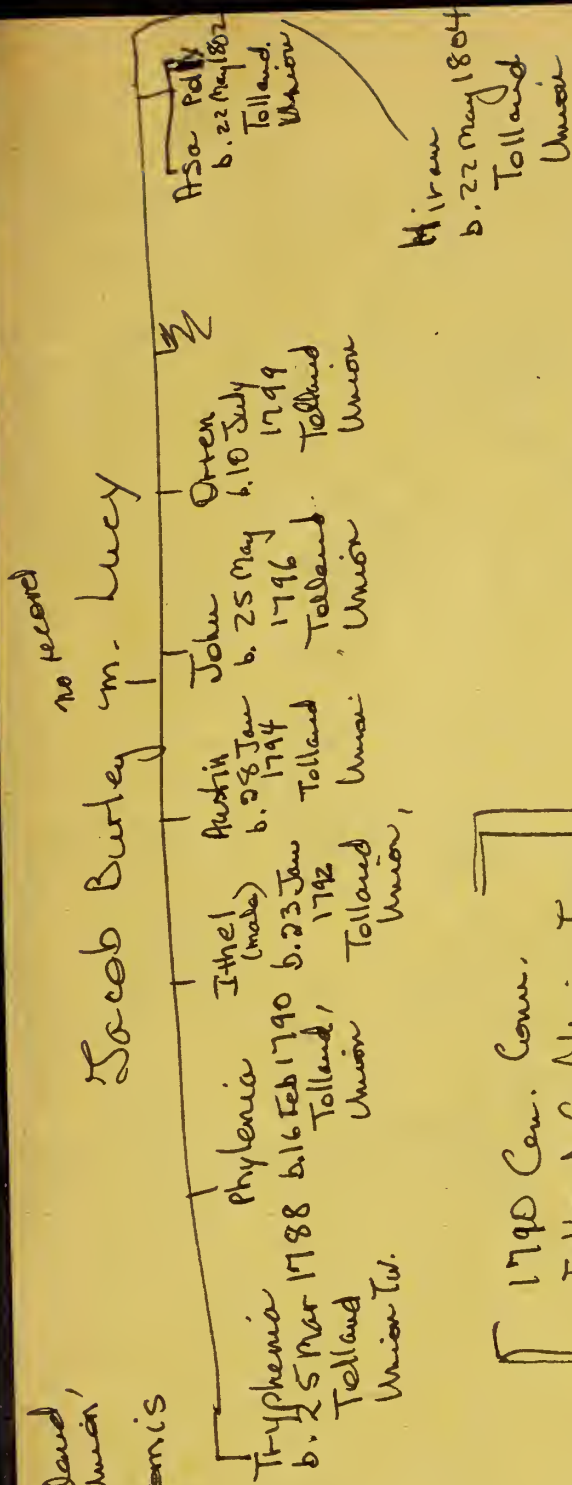 no record
Jacob Burley m. Lucy
Tryphenia
b. 25 Mar 1788
Tolland
Union Tw.
Phylenia
b. 16 Feb 1790
Tolland,
Union
Ithel
(male)
b. 23 Jan
1792
Tolland
Union,
Austin
b. 28 Jan
1794
Tolland
Union.
John
b. 25 May
1796
Tolland
Union
Orren
b. 10 July
1799
Tolland
Union
Asa
b. 22 May 1802
Tolland.
Union
Hiram
b. 22 May 1804
Tolland
Union
omis
1790 Cen. Conn.